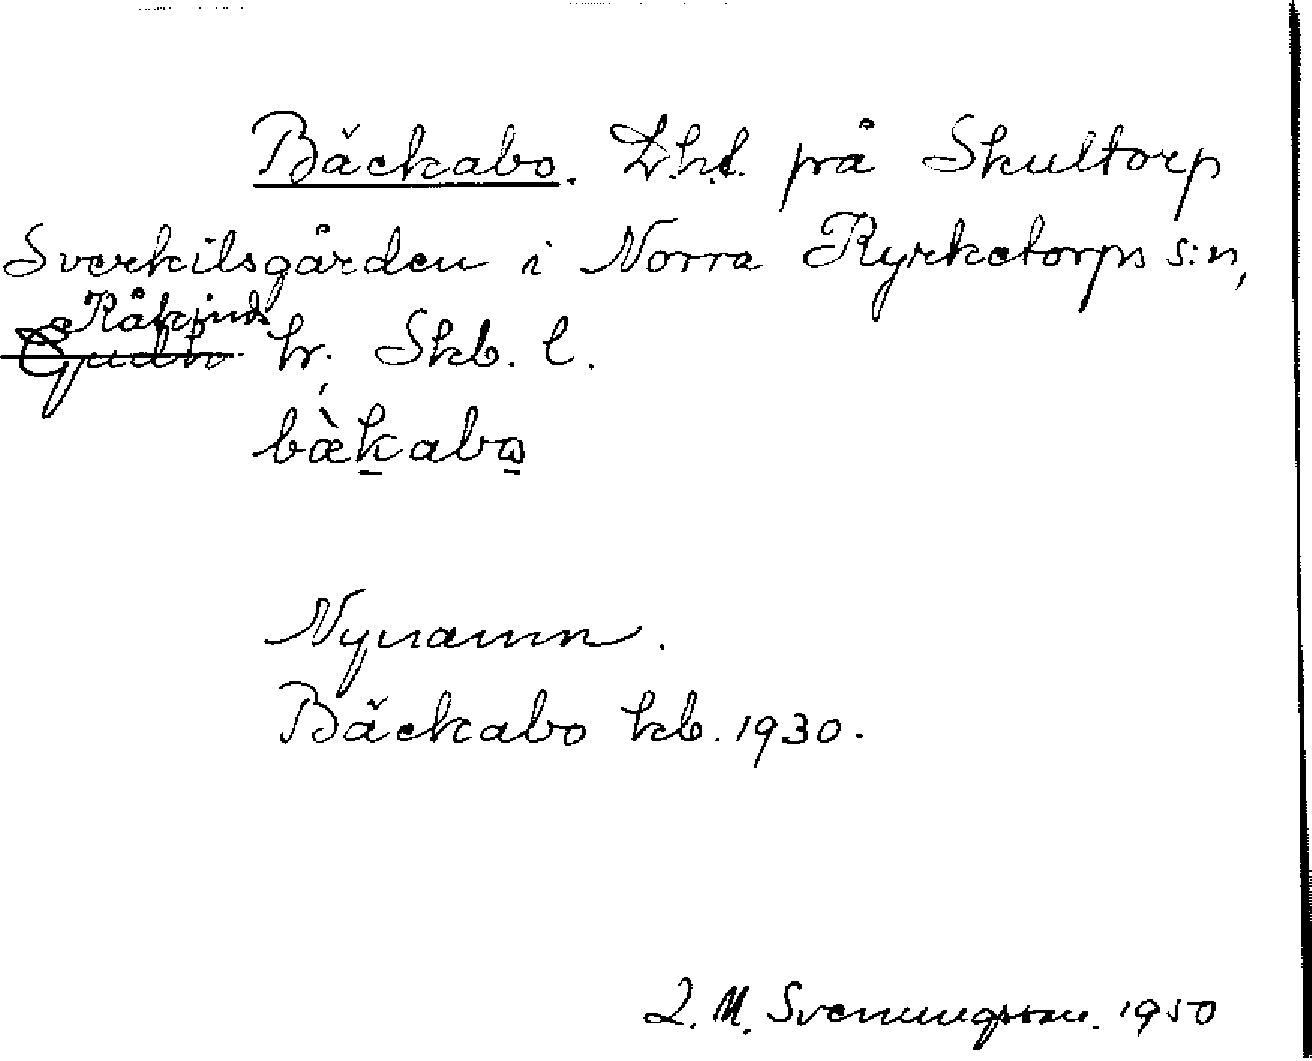 Bäckabo. Lht. på Skultorp
Sverkilsgården i Norra Kyrketorps s:n,
Kåkinds
Gudh. hr. Skb. l.
bàkabo
Nynamn.
Bäckabo kb. 1930.
L. M. Svenungsson. 1950